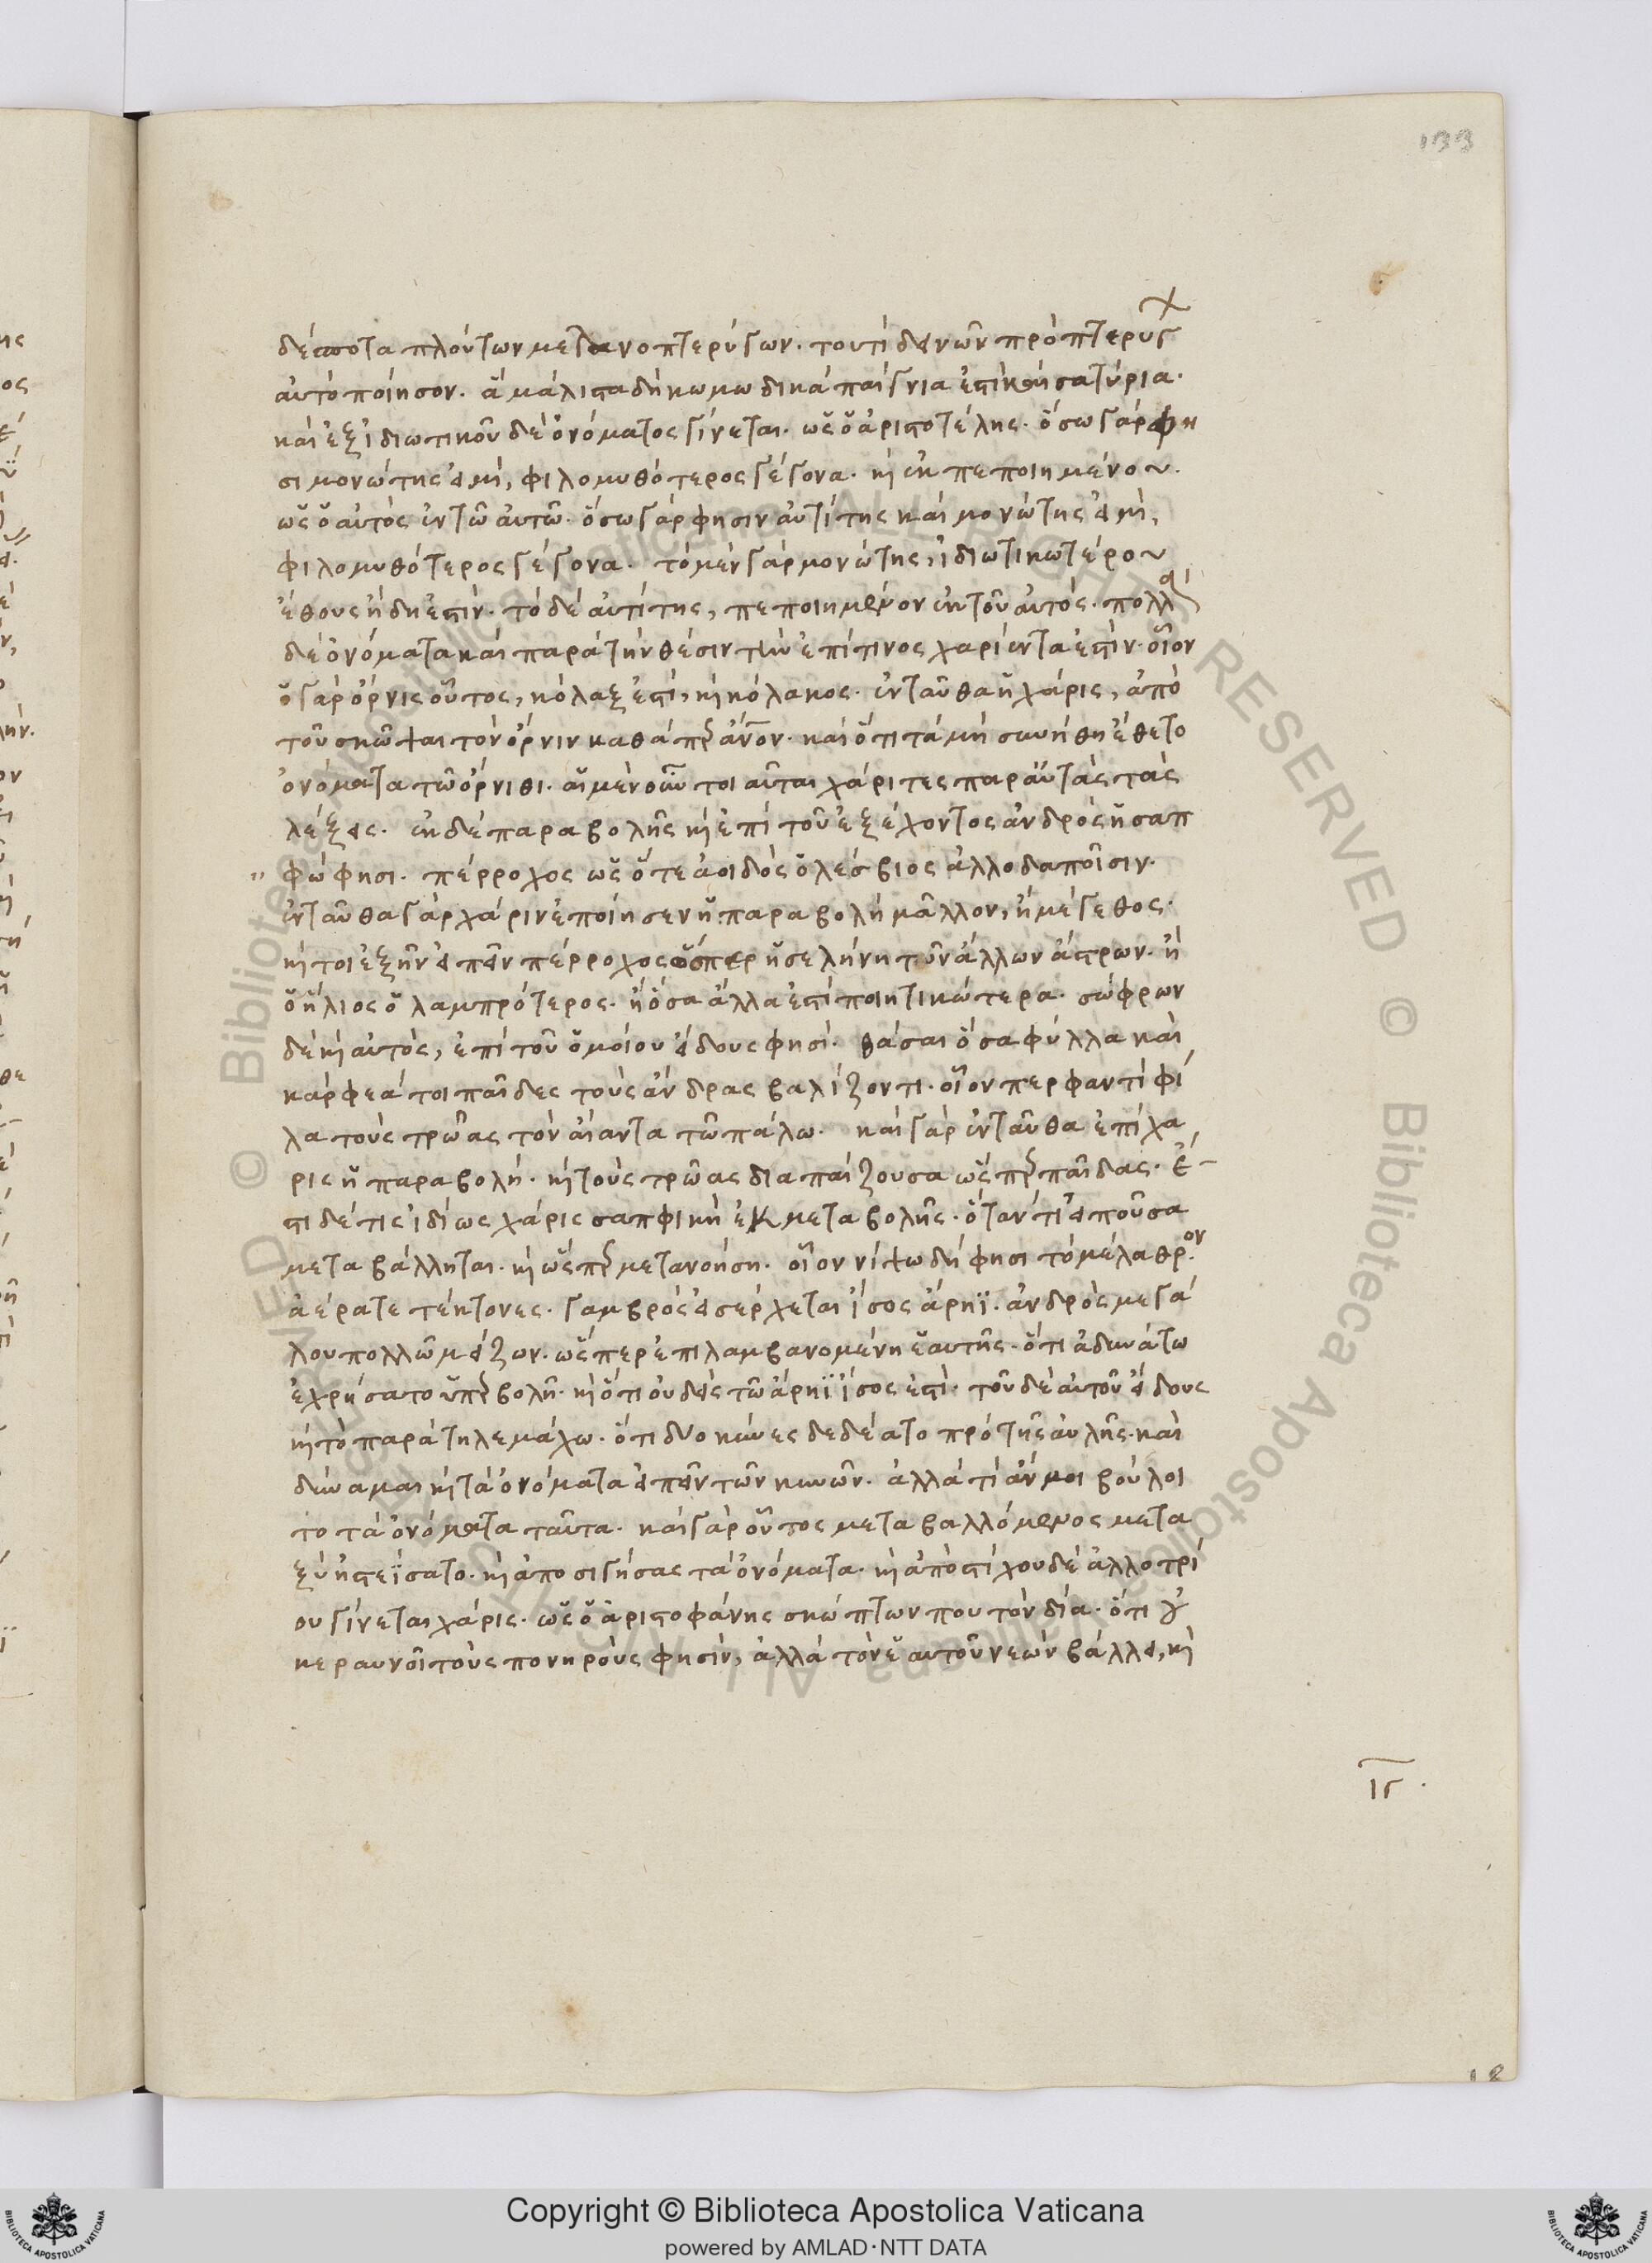 133
δέσποτα πλούτων μελανοπτερύγων. τουτὶ δεινὸν πρὸ πτερύγ
αὐτὸ ποίησον. ἃ μάλιστα δὴ κωμωδικὰ παίγνια ἐστὶ καὶ σατύρια.
καὶ ἐξ ἰδιωτικοῦ δὲ ὀνόματος γίνεται. ὡς ὁ ἀριστοτέλης. ὅσω γὰρ φη
σι μονώτης εἰμὶ, φιλομυθότερος γέγονα. κὴ ἐκ πεποιημένου.
ὡς ὁ αὐτὸς ἐν τῶ αὐτῶ. ὅσω γὰρ φησιν αὐτίτης καὶ μονώτης εἰμὶ,
φιλομυθότερος γέγονα. τὸ μὲν γὰρ μονώτης, ἰδιωτικωτέρου
ἔθους ἤδη ἐστὶν. τὸ δὲ αὐτίτης, πεποιημένον ἐκ τοῦ αὐτός. πολλὰ
δὲ ὀνόματα καὶ παρὰ τὴν θέσιν τὴν ἐπί τινος χαρίεντα ἐστὶν. οἷον
ὁ γὰρ ὄρνις οὗτος, κόλαξ ἐστί, κὴ κόλακος. ἐνταῦθα ἡ χάρις, ἀπὸ
τοῦ σκῶψαι τὸν ὄρνιν καθάπερ ἄνον. καὶ ὅτι τὰ μὴ συνήθη ἔθετο
ὀνόματα τῶ ὄρνιθι. αἱ μὲν οὖν τοιαῦται χάριτες παρ' αὐτὰς τὰς
λέξεις. ἐκ δὲ παραβολῆς κὴ ἐπὶ τοῦ ἐξέχοντος ἀνδρὸς ἡ σαπ
" φώ φησι. πέρροχος ὡς ὅτε ἀοιδὸς ὁ λέσβιος ἀλλοδαποῖσιν.
ἐνταῦθα γὰρ χάριν ἐποίησεν ἡ παραβολὴ μᾶλλον, ἢ μέγεθος.
κὴ τοι ἐξῆν εἰπεῖν πέρροχος ὥσπερ ἡ σελήνη τῶν ἄλλων ἄστρων. ἢ
ὁ ἥλιος ὁ λαμπρότερος. ἢ ὅσα ἄλλα ἐστὶ ποιητικώτερα. σώφρων
δὲ κὴ αὐτὸς, ἐπὶ τοῦ ὁμοίου εἴδους φησί. θᾶσαι ὅσα φύλλα καὶ
κάρφεα τοὶ παῖδες τοὺς ἄνδρας βαλίζοντι. οἷον περ φαντὶ φί
λα τοὺς τρῶας τὸν αἴαντα τῶ πάλω. καὶ γὰρ ἐνταῦθα ἐπίχα
ρις ἡ παραβολή. κὴ τοὺς τρῶας διαπαίζουσα ὥσπερ παῖδας. ἔ-
στι δέ τις ἰδίως χάρις σαπφικὴ ἐκ μεταβολῆς. ὅταν τὶ εἰποῦσα
μεταβάλληται. κὴ ὥσπερ μετανοήση. οἷον νίψω δή φησι τὸ μέλαθρον.
ἀέρατε τέκτονες. γαμβρὸς εἰσέρχεται ἴσος ἄρηϊ. ἀνδρὸς μεγά
λου πολλῶ μείζων. ὥσπερ ἐπιλαμβανομένη ἑαυτῆς. ὅτι ἀδυνάτω
ἐχρήσατο ὑπερβολῆ. κὴ ὅτι οὐδεὶς τῶ ἄρηϊ ἴσος ἐστί. τοῦ δὲ αὐτοῦ εἴδους
κὴ τὸ παρὰ τηλεμάχω. ὅτι δύο κύνες δεδέατο πρὸ τῆς αὐλῆς. καὶ
δύναμαι κὴ τὰ ὀνόματα εἰπεῖν τῶν κυνῶν. ἀλλὰ τί ἄν μοι βούλοι
το τὰ ὀνόματα ταῦτα. καὶ γὰρ οὗτος μεταβαλλόμενος μετα
ξὺ ἠστεΐσατο. κὴ ἀποσιγήσας τὰ ὀνόματα. κὴ ἀπὸ στίχου δὲ ἀλλοτρί
ου γίνεται χάρις. ὡς ὁ ἀριστοφάνης σκώπτων που τὸν δία. ὅτι οὐ
κεραυνοῖ τοὺς πονηρούς φησὶν, ἀλλὰ τὸν ἑαυτοῦ νεὼν βάλλει, κὴ
ιγ.
18
© Biblioteca Apostolica Vaticana ALL RIGHTS RESERVED © Biblioteca Apostolica Vaticana ALL RIGHTS RESERVED
Copyright © Biblioteca Apostolica Vaticana
powered by AMLAD·NTT DATA
BIBLIOTECA APOSTOLICA VATICANA
BIBLIOTECA APOSTOLICA VATICANA